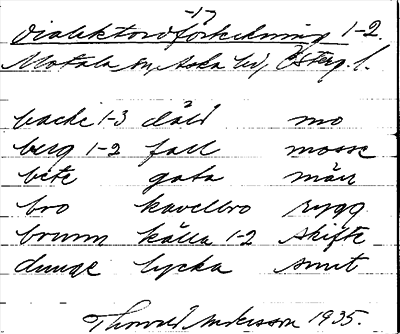 -17
Dialektordförteckning 1-2.
Motala sn, Aska hd, Österg. l.
backe 1-3 däld mo
berg 1-2 fall mosse
bete gata märr
bro kavelbro rygg
brunn källa 1-2 skifte
dunge lycka smet
Thorvald Andersson 1935.